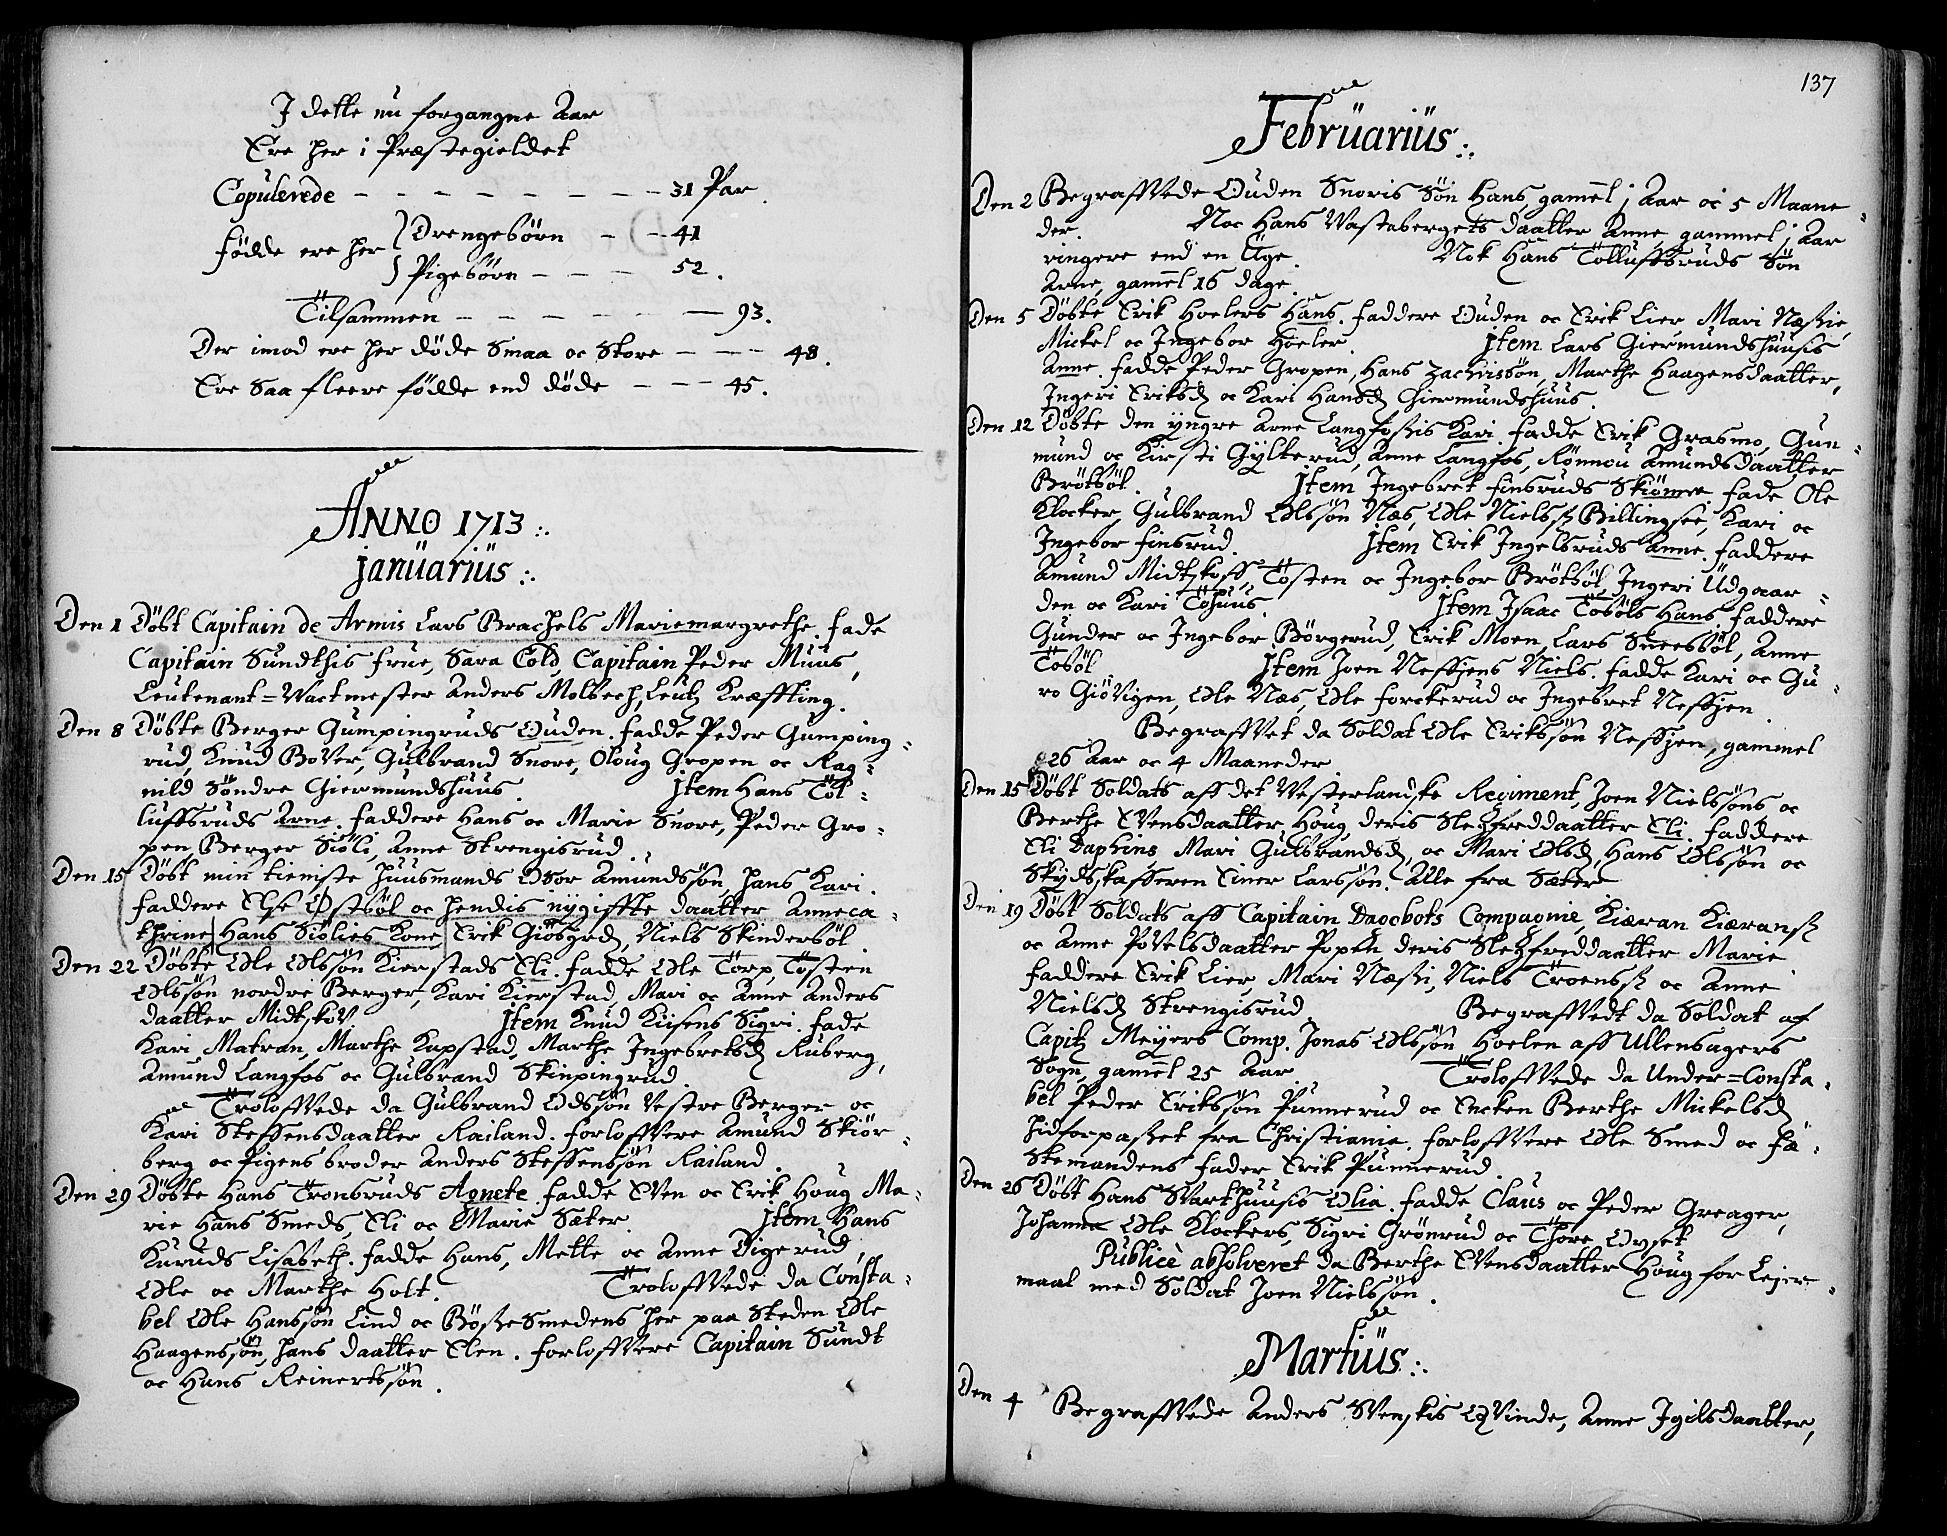 I dette nu forgangne Aar
Ere her i Præstegieldet
Copulerede - - - - - - - - 31 Par.
Fødde ere her } Drengebørn - - 41
} Pigebørn - - - - 52.
Tilsammen - - - - - - - 93.
Der imod ere her døde Smaa oc Store - - - 48.
Ere Saa fleere fødde end døde - - - 45.
ANNO 1713
januarius
Den 1 Døbt Capitain de Armis Lars Brachels Mariemargrethe. fade
Capitain Sundthis frue, Sara Cold, Capitain Peder Muus,
Leutenant=Wactmester Anders Molbech, Leut Kræffting.
Den 8 Døbte Berger Gumpingruds Ouden. fadde Peder Gumping=
rud, Knud Bover, Gulbrand Snore, Oloug Gropen oc Rag=
nild Søndre Giermundshuus. jtem Hans Tol=
luffsruds Arne. faddere Hans oc Marie Snore, Peder Gro=
pen Berger Siøli, Anne Strengisrud.
Den 15 Døbt min tiemste huusmands Osor Amundssøn hans Kari.
faddere Else Østbøl oc hendis nygiffte daatter Anneca=
thrine, Hans Siølies Kone, Erik Giøsgrd, Niels Skinderbøl.
Den 22 Døbte Ole Olssøn Kierstads Eli. fadde Ole Torp, Tosten
Olssøn nordre Berger, Kari Kierstad, Mari oc Anne Anders
daatter Midtskov. jtem Knud Kiisens Sigri. fade
Kari Matran, Marthe Kapstad, Marthe Ingebretsd Ruberg,
Amund Langfos oc Gulbrand Skinpingrud.
Troloffvede da Gulbrand Odssøn Vestre Berger oc
Kari Steffensdaatter Railand. forloffvere Amund Skiør=
berg oc Pigens broder Anders Steffenssøn Railand.
Den 29 Døbte Hans Tronsruds Agnete. fadde Sven oc Erik Houg Ma=
rie Hans Smeds, Eli oc Marie Sæter. jtem Hans
Kuruds Lisabeth. fadde Hans, Mette oc Anne Digerud,
Ole oc Marthe Holt. Troloffvede da Consta=
bel Ole Hanssøn Lind oc Bøsse Smedens her paa Steden Ole
Haagenssøn, hans daatter Elen. forloffvere Capitain Sundt
oc Hans Reinertssøn.
137
Februarius
Den 2 Begraffvede Ouden Snoris Søn Hans, gamel j Aar oc 5 Maane=
der. Noc Hans Vastabergets daatter Anne gammel j Aar
ringere end en Uge. Nok Hans Tolluffsruds Søn
Arne, gamel 16 dage.
Den 5 Døbte Erik Hoelers Hans. faddere Ouden oc Erik Lier, Mari Næssie,
Mickel oc Ingebor Hoeler. jtem Lars Giermundshuusis
Anne. fadde Peder Gropen, Hans Zachrissøn, Marthe Haagensdaatter,
Ingeri Eriksd oc Kari Hansd Giermundshuus.
Den 12 Døbte den yngre Arne Langfossis Kari. fadde Erik Grasmo, Gun=
mund oc Kirsti Gylterud, Anne Langfos, Rønnou Amundsdaatter
Brøtbøl. jtem Ingebret finsruds Skiønne fade Ole
Klocker, Gulbrand Olssøn Næs, Ole Nielss Billingsee, Kari oc
Ingebor finsrud. jtem Erik Ingelsruds Anne. faddere
Amund Midtskoff, Tosten oc Ingebor Brøtbøl Ingeri Udgaar=
den oc Kari Tøhuus. jtem Isaac Tobøls Hans. faddere
Gunder oc Ingebor Børgerud, Erik Moen, Lars Sneesbøl, Anne
Tobøl. jtem Joen Neffiens Niels. fadde Kari oc Gu=
ro Giøvigen, Ole Næs, Ole forckerud oc Ingebret Neffjen.
Begraffvet da Soldat Ole Erikssøn Neffjen, gammel
26 Aar oc 4 Maaneder
Den 15 Døbt Soldats aff det Vesterlandske Regiment, Joen Nielssøns oc
Berthe Svensdaatter Houg, deris Slegfreddaatter Eli. faddere
Eli Daphins, Mari Gulbrandsd, oc Mari Olsd, Hans Olssøn oc
Skydsskafferen Einer Larssøn. Alle fra Sæter
Den 19 Døbt Soldats aff Capitain Daoobots Compagnie, Kiæran Kiæranss
oc Anne Povelsdaatter Popen deris Slegfreddaatter Marie
faddere Erik Lier, Mari Næssi, Niels Troenss oc Anne
Nielsd Strengisrud. Begraffvedt da Soldat af
Capit Meyers Comp. Jonas Olssøn Hoelen aff Ullensagers
Sogn, gamel 25 Aar. Troloffvede da Under=Consta=
bel Peder Erikssøn Punnerud oc Encken Berthe Mickelsd
hidforpasset fra Christiania. forloffvere Ole Smed oc fæ=
stemandens fader Erik Punnerud.
Den 26 Døbt Hans Svarthuusis Olia. fadde Claus oc Peder Greager,
Johanna Ole Klockers, Sigri Grønrud oc Thore Odyset
Publice absolveret da Berthe Svensdaatter Houg for Lejer=
maal med Soldat Joen Nielssøn.
Martius
Den 4 Begraffvede Anders Svenskis Qvinde, Anne Igilsdaatter,